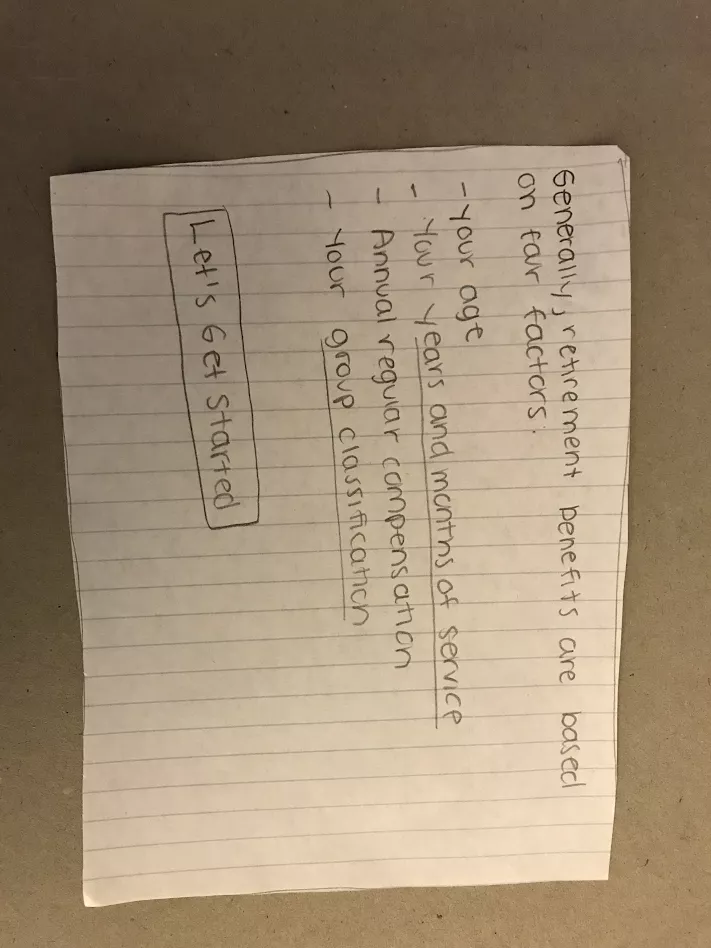 Generally, retirement benefits are based
on four factors:
- Your age
- Your years and months of service
- Annual regular compensation
- Your group classification
Let's Get Started